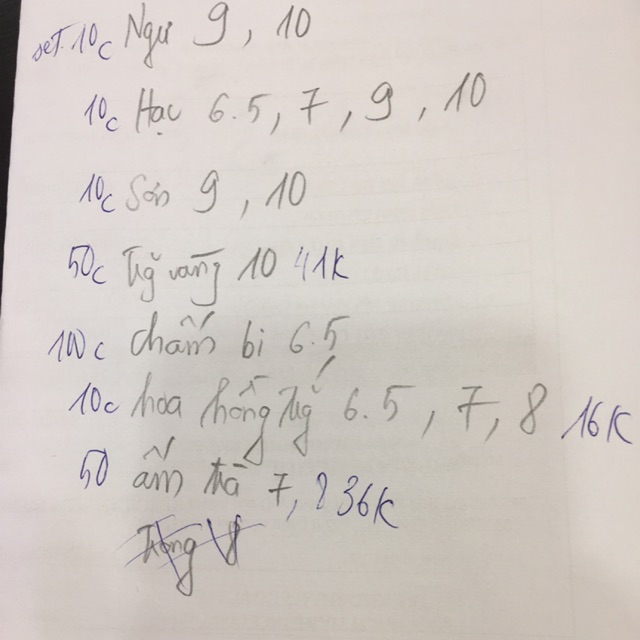 set. 10c Ngư 9, 10
10c Hạc 6.5, 7, 9, 10
10c Sơn 9, 10
50c Trg vàng 10 41K
100c chấm bi 6.5
10c hoa hồng trg 6.5, 7, 8 16K
50 ấm trà 7, 8 36K
Trống 8